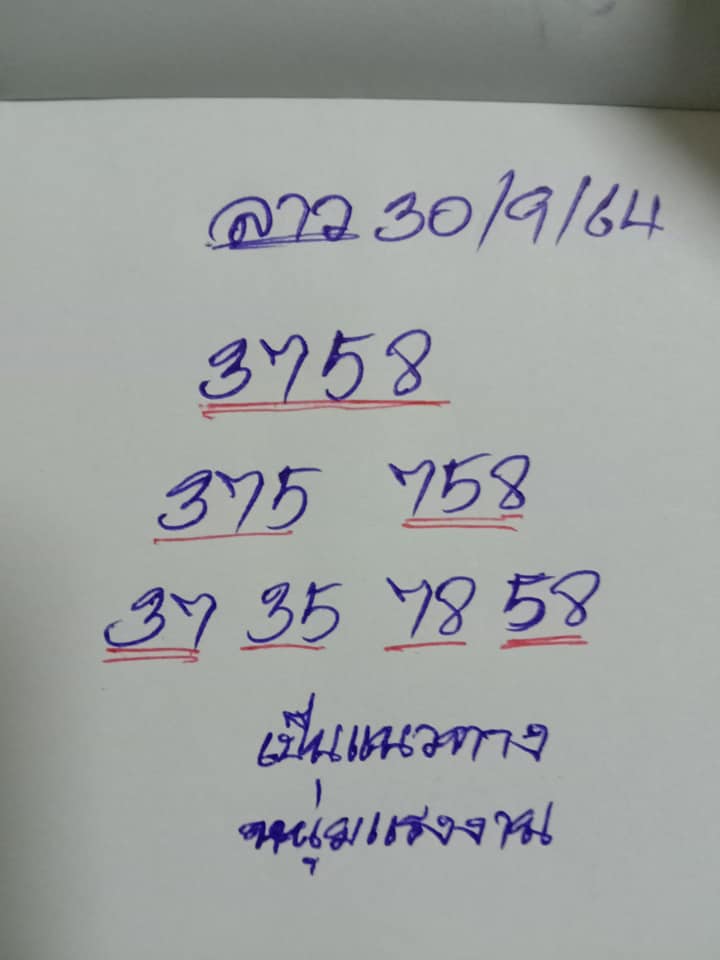 ลาว 30/9/64
3758
375 758
37 35 78 58
เป็นแนวทาง
หนุ่มแรงงาน